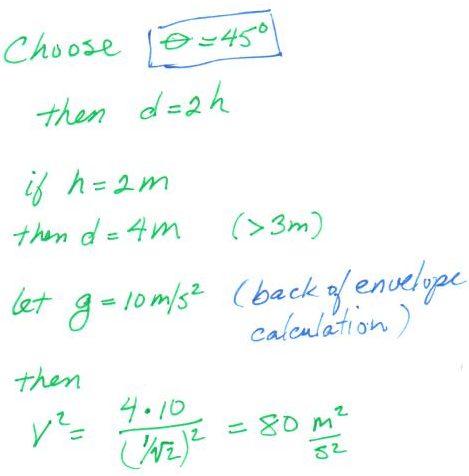 Choose θ=45°
then d=2h
if h=2m
then d=4m (>3m)
let g=10m/s² (back of envelope
calculation)
then
V² = 4·10/(1/√2)² = 80 m²/s²